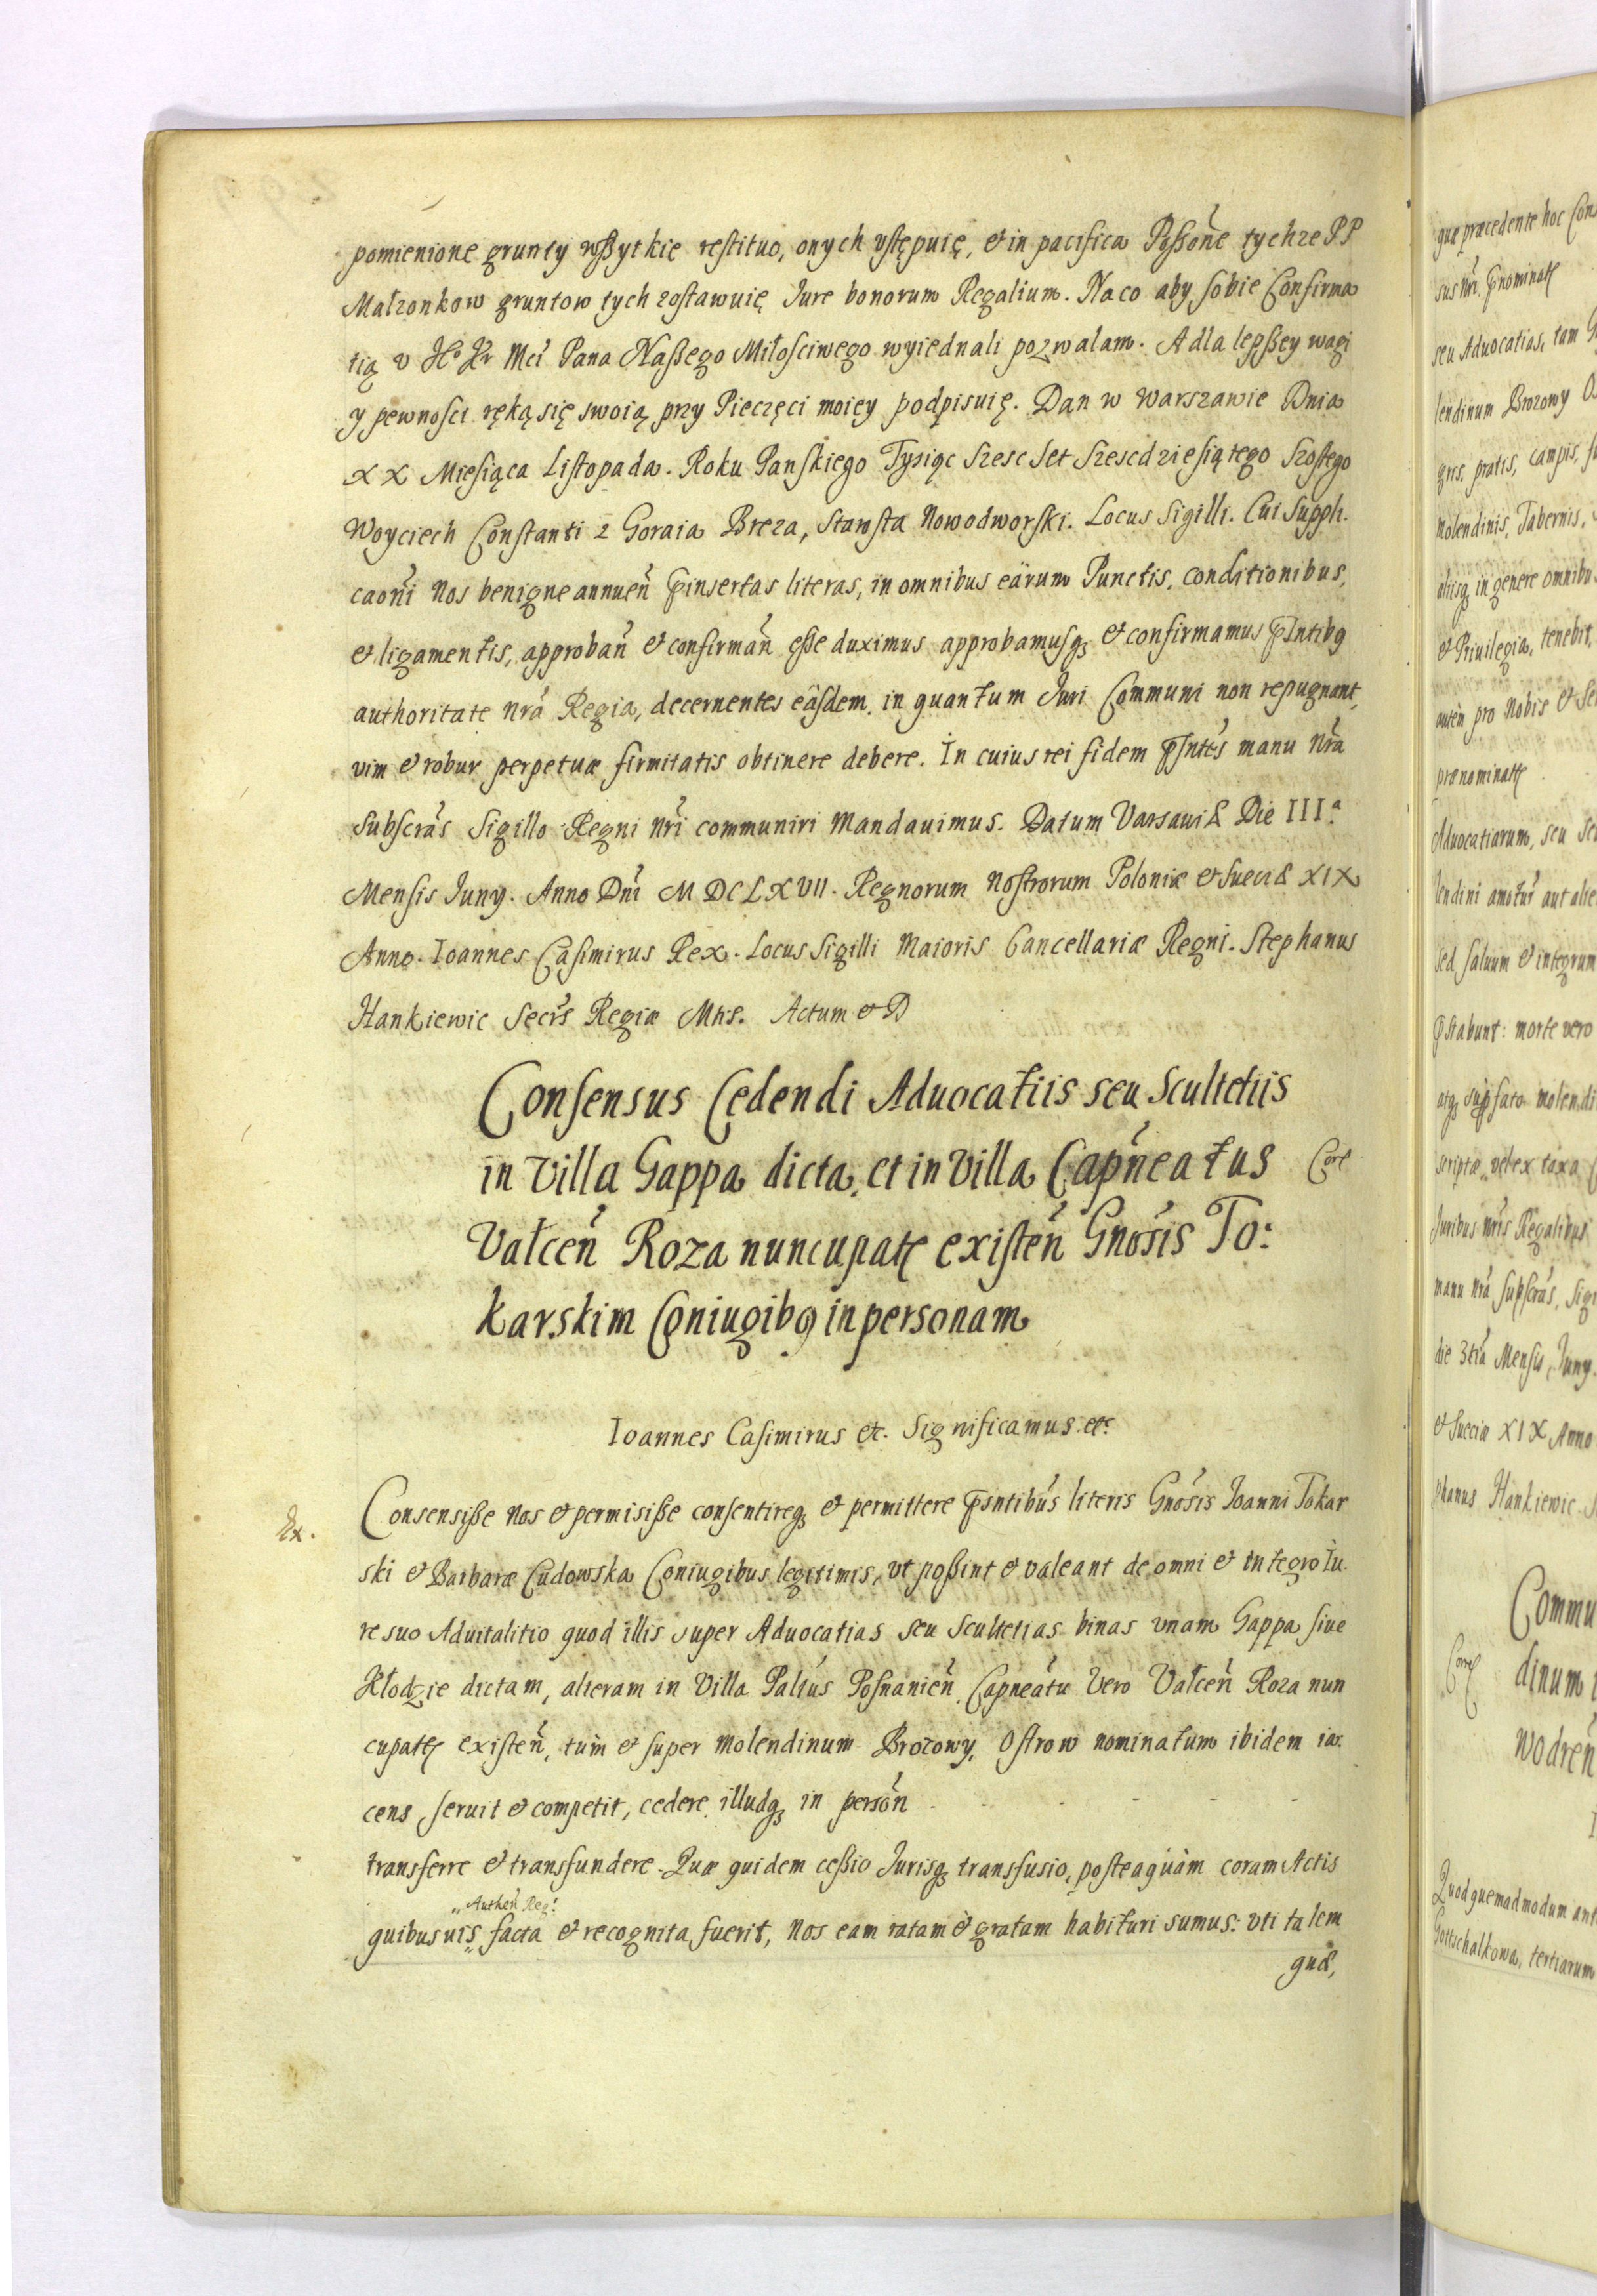 pomienione grunty wßytkie restituo, onych vstępuię, et in pacifica Poßone tychze PP
Małzonkow gruntow tych zostawuię Jure bonorum Regalium. Na co aby sobie Confirma
tią v Je° Kr Mci Pana Naßego Miłosciwego wyiednali pozwalam. A dla lepßey wagi
y pewnosci ręką się swoią przy Pieczęci moiey podpisuię. Dan w Warszawie Dnia
XX Miesiąca Listopada. Roku Panskiego Tysiąc Szesc Set Szescdziesiątego Szostego
Woyciech Constanti z Goraia Breza, Starosta Nowodworski. Locus Sigilli. Cui Suppli.
caoni Nos benigne annuen pinsertas literas, in omnibus earum Punctis, conditionibus,
et ligamentis, approban et confirman eße duximus approbamusq3 et confirmamus pSntibq
authoritate nra Regia, decernentes easdem, in quantum Juri Communi non repugnant,
vim et robur perpetuæ firmitatis obtinere debere. In cuius rei fidem pSntes manu Nra
Subscras Sigillo Regni Nri communiri Mandauimus. Datum Varsauiæ Die IIIª
Mensis Juny. Anno Dni MDCLXVII. Regnorum Nostrorum Poloniæ et Sueciæ XIX
Anno. Ioannes Casimirus Rex. Locus Sigilli Maioris Cancellariæ Regni. Stephanus
Hankiewic Secrs Regiæ Mtis. Actum et D
Consensus Cedendi Aduocatiis seu Scultetiis
in Villa Gappa dicta, et in Villa Capneatus Corr
Valcen Roza nuncupate existen Gnosis To:
karskim Coniugibq in personam
Ioannes Casimirus etc. Significamus etc
Ex. Consensiße Nos et permisiße consentireq3 et permittere pSntibus literis Gnosis Joanni Tokar
ski et Barbaræ Cudowska Coniugibus legitimis, vt poßint et valeant de omni et integro Iu.
re suo Aduitalitio quod illis super Aduocatias seu Scultetias binas vnam Gappa siue
Kłodzie dictam, alteram in Villa Palus Posnanien, Capneatu Vero Valcen Roza nun
cupate existen, tum et super Molendinum Brozowy, Ostrow nominatum ibidem ia.
cens seruit et competit, cedere illudq3 in person - - - - - -
transferre et transfundere. Quæ quidem ceßio Jurisq3 transfusio, posteaquam coram Actis
„Authen Reg:
quibusuis„ facta et recognita fuerit, Nos eam ratam et gratam habituri sumus: vti talem
quæ,
quæ præcedente hoc Cons
sus Nri pnominate
seu Aduocatias, tam G
lendinum Brozowy Os
gris, pratis, campis, s
Molendinis, Tabernis,
aliisq3 in genere omnibu
et Priuilegia, tenebit,
autem pro Nobis et Se
prænominate
Aduocatiarum, seu Sc
lendini amotur aut alie
sed saluum et integrum
pstabunt: morte vero
atq3 supfato molendi
scriptæ, vel ex taxa
Juribus Nris Regalibus
manu Nra Subscras, Sigi
die 3tia Mensis Juny.
et Sueciæ XIX Anno
phanus Hankiewic. S
Commu
Corre dinum
wodren
Quod quemadmodum ant
Gottschalkowa, tertiarum